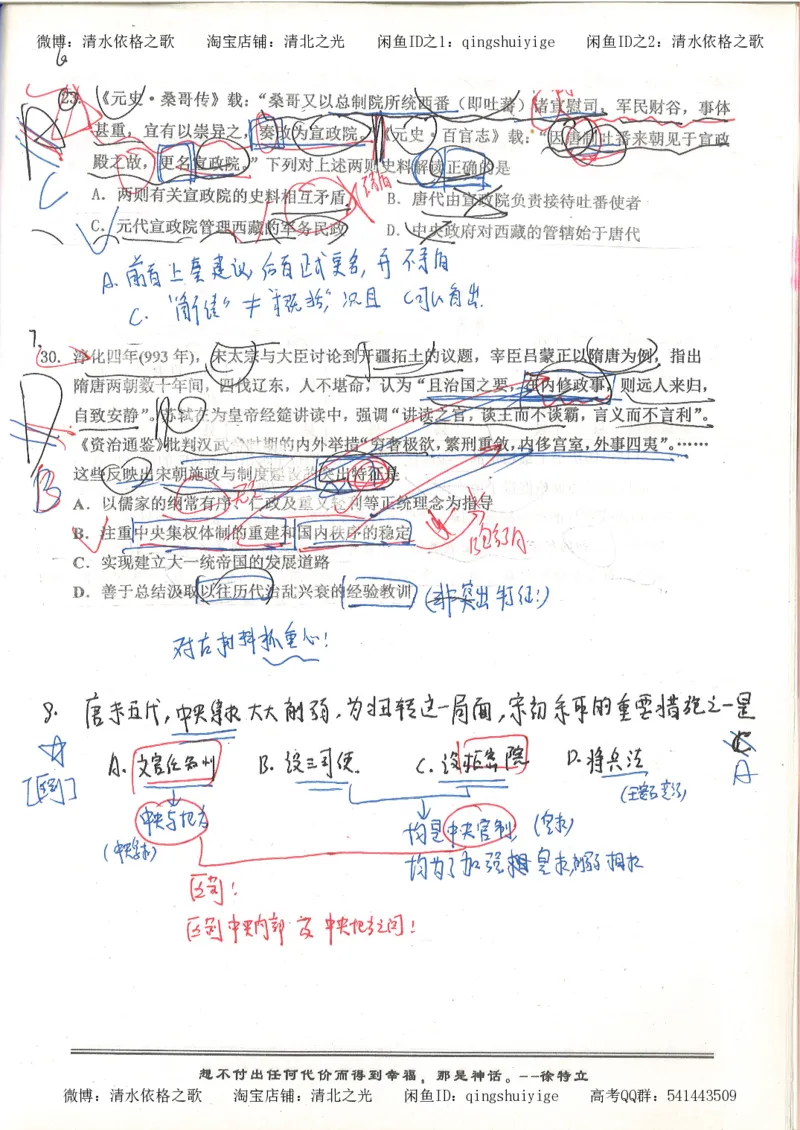 微博：清水依格之歌　淘宝店铺：清北之光　闲鱼ID之1：qingshuiyige　闲鱼ID之2：清水依格之歌
6
23. 《元史·桑哥传》载：“桑哥又以总制院所统西番（即吐蕃）诸宣慰司，军民财谷，事体
甚重，宜有以崇异之，奏改为宣政院。”《元史·百官志》载：“因唐制吐番来朝见于宣政
殿之故，更名宣政院。”下列对上述两则史料解读正确的是
A. 两则有关宣政院的史料相互矛盾　B. 唐代由宣政院负责接待吐番使者
C. 元代宣政院管理西藏的军务民政　D. 中央政府对西藏的管辖始于唐代
C
A. 前者上奏建议，后者正式更名，并不矛盾
C. “解读”≠“概括”，况且C可以看出.
7.
30. 淳化四年(993年)，宋太宗与大臣讨论到开疆拓土的议题，宰臣吕蒙正以隋唐为例，指出
隋唐两朝数十年间，四伐辽东，人不堪命，认为“且治国之要，在内修政事，则远人来归，
自致安静”。苏轼在为皇帝经筵讲读中，强调“讲读之官，谈王而不谈霸，言义而不言利”。
《资治通鉴》批判汉武帝时期的内外举措“穷奢极欲，繁刑重敛，内侈宫室，外事四夷”。……
这些反映出宋朝施政与制度建设的突出特征是
A. 以儒家的纲常有序、仁政及重义轻利等正统理念为指导
B. 注重中央集权体制的重建和国内秩序的稳定
C. 实现建立大一统帝国的发展道路
D. 善于总结汲取以往历代治乱兴衰的经验教训
B
(非突出特征!)
对古材料抓重心!
8. 唐末五代，中央集权大大削弱，为扭转这一局面，宋初采取的重要措施之一是
A. 文官任知州　B. 设三司使.　C. 设枢密院　D. 将兵法
C
A
☆
[区别]
(王安石变法)
中央与地方
(中央集权)
均是中央官制，(皇权)
均为了加强皇权，削弱相权
区别!
区别中央内部 与 中央地方之间!
想不付出任何代价而得到幸福，那是神话。--徐特立
微博：清水依格之歌　淘宝店铺：清北之光　闲鱼ID：qingshuiyige　高考QQ群：541443509